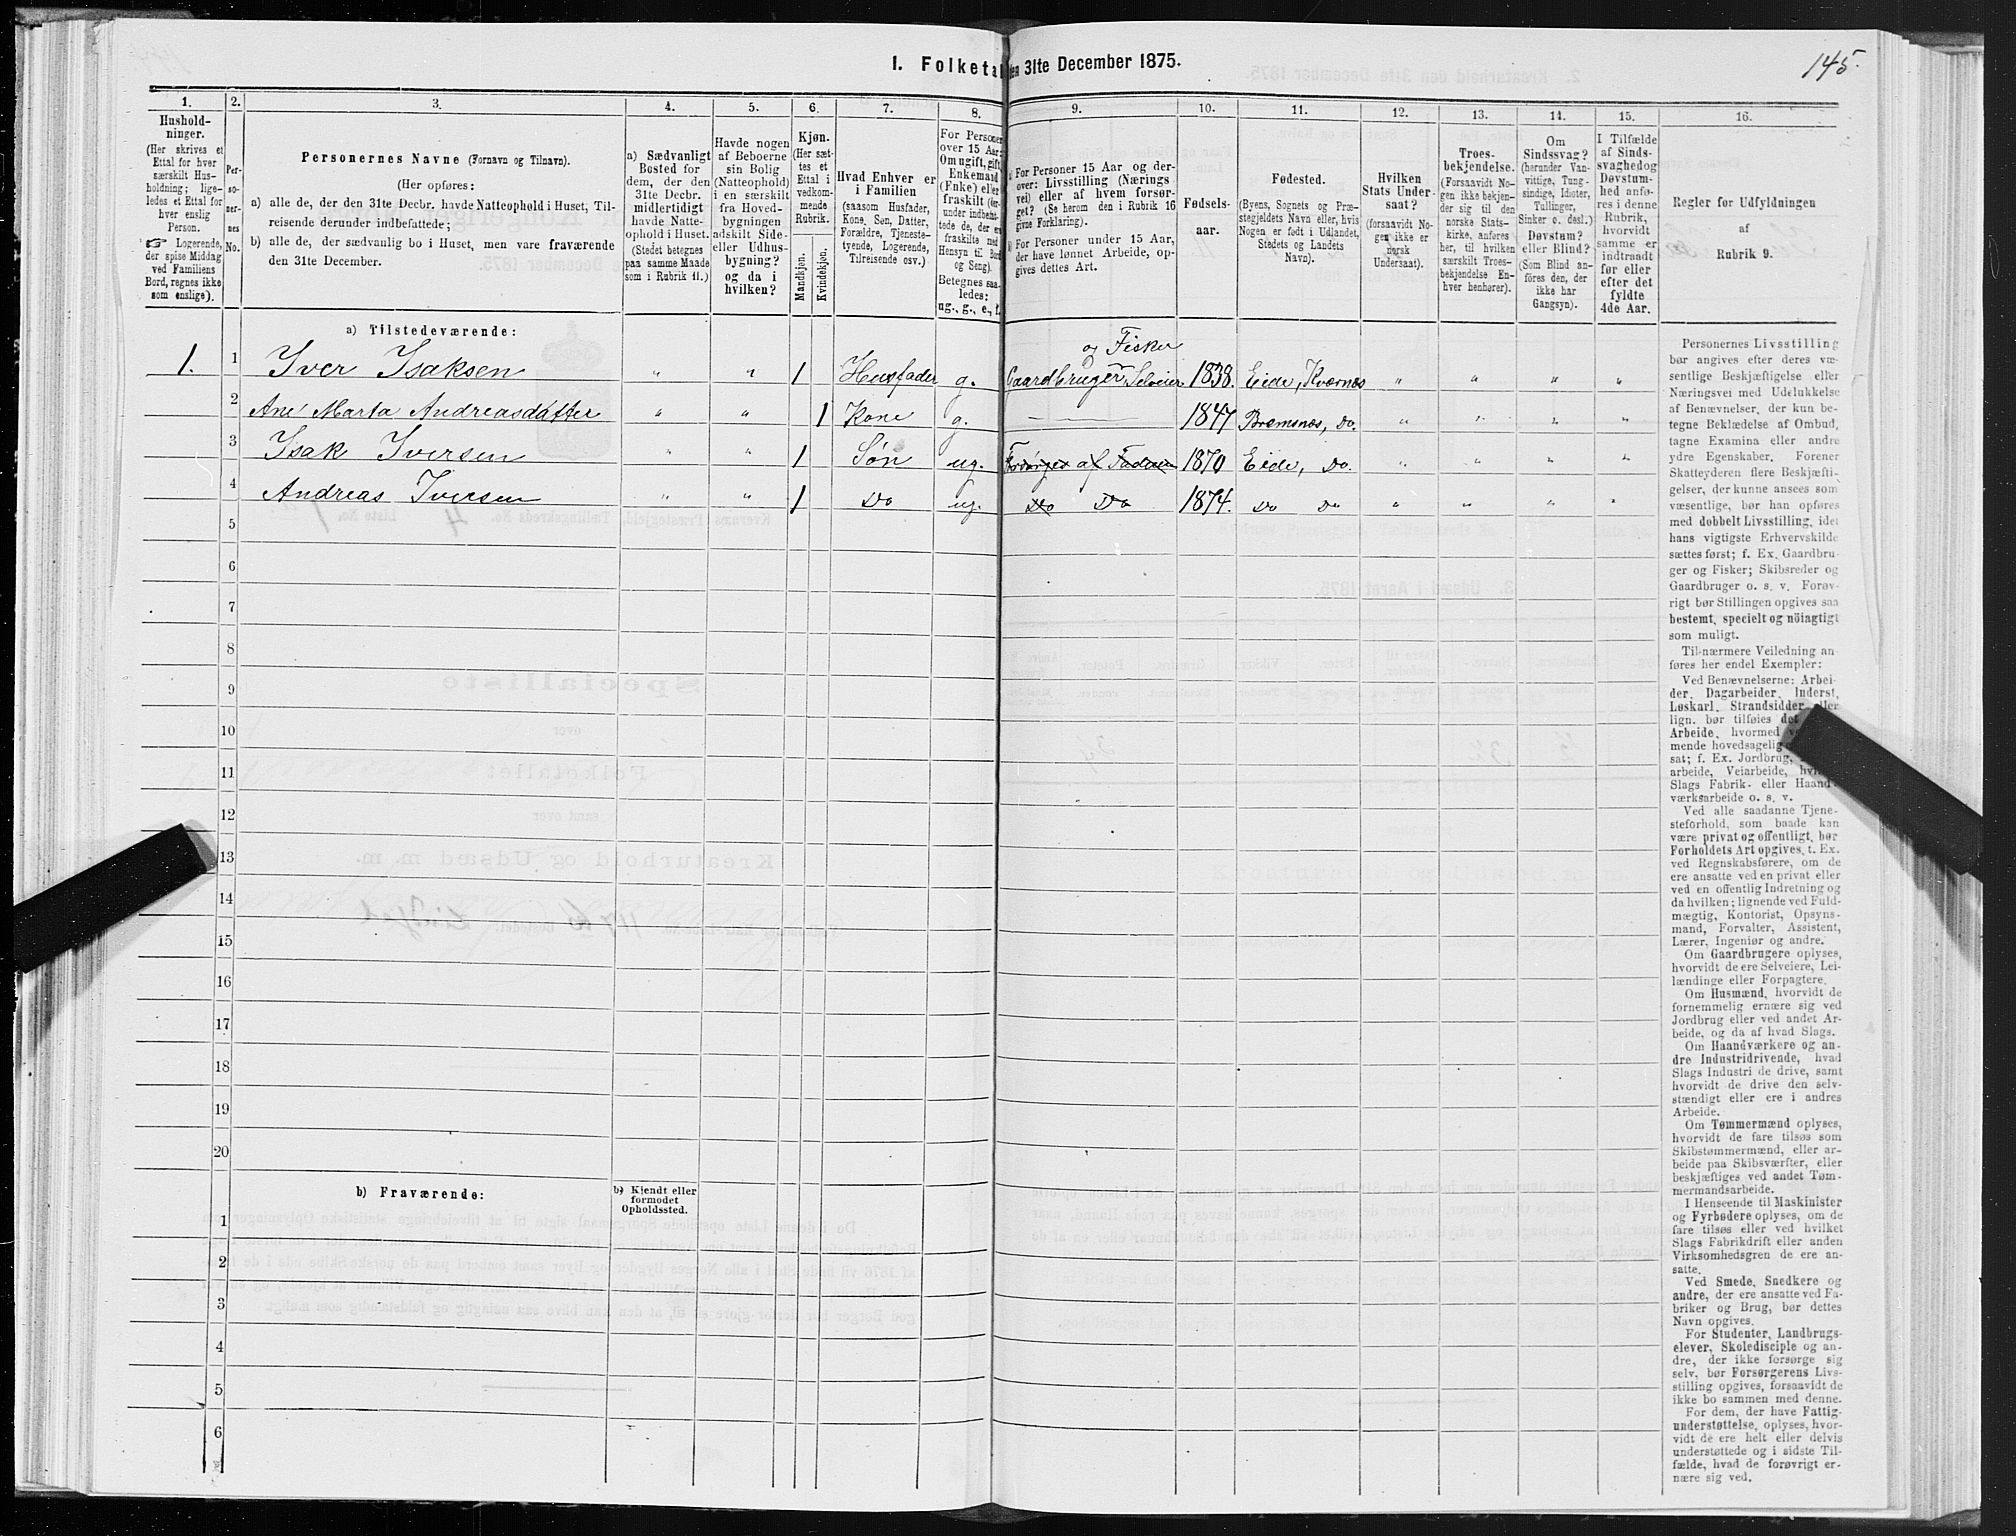 145.
1. Folketal
den 31te December 1875.
1.
2.
3.
4.
5.
6.
7.
8.
9.
10.
11.
12.
13.
14.
15.
16.
Hushold-
ninger.
(Her skrives et
Ettal for hver
særskilt Hus-
holdning; lige-
ledes et Ettal for
hver enslig
Person.
Logerende,
der spise Middag
ved Familiens
Bord, regnes ikke
som enslige).
Per-
so-
ner-
nes
No.
Personernes Navne (Fornavn og Tilnavn).
(Her opføres:
a) alle de, der den 31te Decbr. havde Natteophold i Huset, Til-
reisende derunder indbefattede;
b) alle de, der sædvanlig bo i Huset, men vare fraværende
den 31te December.
a) Sædvanligt
Bosted for
dem, der den
31te Decbr.
midlertidigt
havde Natte-
ophold i Huset.
(Stedet betegnes
paa samme Maade
som i Rubrik 11.)
Havde nogen
af Beboerne
sin Bolig
(Natteophold)
i en særskilt
fra Hoved-
bygningen
adskilt Side-
eller Udhus-
bygning?
og da i
hvilken?
Kjøn.
(Her sæt-
tes et
Ettal i
vedkom-
mende
Rubrik.
Mandkjøn.
Kvindekjøn.
Hvad Enhver er
i Familien
(saasom Husfader,
Kone, Søn, Datter,
Forældre, Tjeneste-
tyende, Logerende,
Tilreisende osv.)
For Personer
over 15 Aar:
Om ugift, gift,
Enkemand
(Enke) eller
fraskilt (der-
under indbefat-
tede de, der ere
fraskilte med
Hensyn til Bord
og Seng).
Betegnes saa-
ledes:
ug., g., e., f.
a) For Personer 15 Aar og der-
over: Livsstilling (Nærings-
vei) eller af hvem forsør-
get? (Se herom den i Rubrik 16
givne Forklaring).
b) For Personer under 15 Aar,
der have lønnet Arbeide, op-
gives dettes Art.
Fødsels-
aar.
Fødested.
(Byens, Sognets og Præ-
stegjeldets Navn eller, hvis
Nogen er født i Udlandet,
Stedets og Landets
Navn).
Hvilken
Stats Under-
saat?
(forsaavidt No-
gen ikke er
norsk
Undersaat).
Troes-
bekjendelse.
(Forsaavidt No-
gen ikke bekjen-
der sig til den
norske Stats-
kirke, anføres
her, til hvilken
særskilt Troes-
bekjendelse En-
hver henhører).
Om
Sindssvag?
(herunder Van-
vittige, Tung-
sindige, Idioter,
Tullinger,
Sinker o. desl.)
Døvstum?
eller Blind?
(Som Blind an-
føres den, der
ikke har
Gangsyn).
I Tilfælde
af Sinds-
svaghed og
Døvstum-
hed anfø-
res i denne
Rubrik,
hvorvidt
samme er
indtraadt
før eller
efter det
fyldte
4de Aar.
Regler for Udfyldningen
af
Rubrik 9.
a) Tilstedeværende:
1. 1 Iver Isaksen " " 1 Husfader g. Gaardbruger og Fisker Selveier 1838. Eide, Kværnes " " " "
2 Ane Marta Andreasdatter " " 1 Kone g. — 1847 Bremsnes, Do. " " " "
3 Isak Iversen " " 1 Søn ug. Forsørges af Faderen 1870 Eide, Do. " " " "
4 Andreas Iversen " " 1 Do ug. Do Do 1874. Do Do " " " "
5
6
7
8
9
10
11
12
13
14
15
16
17
18
19
20
b) Fraværende:
b) Kjendt eller
formodet
Opholdssted.
1
2
3
4
5
6
Personernes Livsstilling
bør angives efter deres væ-
sentlige Beskjæftigelse eller
Næringsvei med Udelukkelse
af Benævnelser, der kun be-
tegne Beklædelse af Ombud,
tagne Examina eller andre
ydre Egenskaber. Forener
Skatteyderen flere Beskjæfti-
gelser, der kunne ansees som
væsentlige, bør han opføres
med dobbelt Livsstilling, idet
hans vigtigste Erhvervskilde
sættes først; f. Ex. Gaardbru-
ger og Fisker; Skibsreder og
Gaardbruger o. s. v. Forøv-
rigt bør Stillingen opgives saa
bestemt, specielt og nöiagtigt
som muligt.
Til nærmere Veiledning an-
føres her endel Exempler:
Ved Benævnelserne: Arbei-
der, Dagarbeider, Inderst,
Løskarl, Strandsidder eller
lign. bør tilføies det
Arbeide, hvormed
mende hovedsagelig
sat; f. Ex. Jordbrug,
arbeide, Veiarbeide,
Slags Fabrik- eller Haand-
værksarbeide o. s. v.
Ved alle saadanne Tjene-
steforhold, som baade kan
være privat og offentligt, bør
Forholdets Art opgives, t. Ex.
ved Regnskabsførere, om de
ere ansatte ved en privat eller
ved en offentlig Indretning og
da hvilken; lignende ved Fuld-
mægtig, Kontorist, Opsyns-
mand, Forvalter, Assistent,
Lærer, Ingeniør og andre.
Om Gaardbrugere oplyses,
hvorvidt de ere Selveiere, Lei-
lændinge eller Forpagtere.
Om Husmænd, hvorvidt de
fornemmelig ernære sig ved
Jordbrug eller ved andet Ar-
beide, og da af hvad Slags.
Om Haandværkere og an-
dre Industridrivende, hvad
Slags Industri de drive, samt
hvorvidt de drive den selv-
stændigt eller ere i andres
Arbeide.
Om Tømmermænd oplyses,
hvorvidt de fare tilsøs som
Skibstømmermænd, eller ar-
beide paa Skibsværfter, eller
beskjæftiges ved andet Tøm-
mermandsarbeide.
I Henseende til Maskinister
og Fyrbødere oplyses, om de
fare tilsøs eller ved hvilket
Slags Fabrikdrift eller anden
Virksomhedsgren de ere an-
satte.
Ved Smede, Snedkere og
andre, der ere ansatte ved Fa-
briker og Brug, bør dettes
Navn opgives.
For Studenter, Landbrugs-
elever, Skoledisciple og an-
dre, der ikke forsørge sig
selv, bør Forsørgerens Livs-
stilling opgives, forsaavidt de
ikke bo sammen med denne.
For dem, der have Fattig-
understøttelse, oplyses, hvor-
vidt de ere helt eller delvis
understøttede og i sidste Til-
fælde, hvad de forøvrigt er-
nære sig ved.